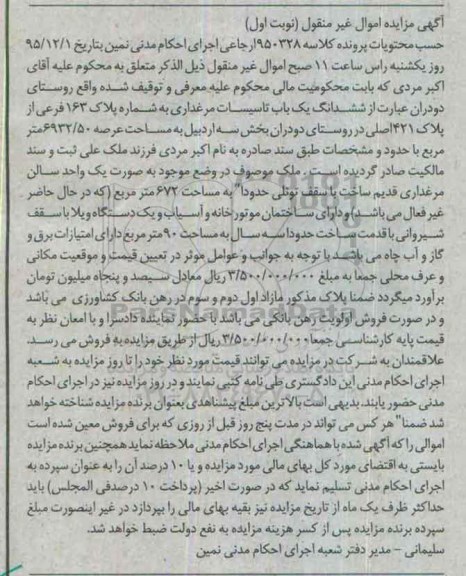 آگهی مزایده اموال غیر منقول (نوبت اول)
حسب محتویات پرونده کلاسه ۹۵۰۳۲۸ارجاعی اجرای احکام مدنی نمین بتاریخ ۹۵/۱۲/۱
روز یکشنبه راس ساعت ۱۱ صبح اموال غیر منقول ذیل الذکر متعلق به محکوم علیه آقای
اکبر مردی که بابت محکومیت مالی محکوم علیه معرفی و توقیف شده واقع روستای
دودران عبارت از ششدانگ یک باب تاسیسات مرغداری به شماره پلاک ۱۶۳ فرعی از
پلاک ۴۲۱اصلی در روستای دودران بخش سه اردبیل به مساحت عرصه ۶۹۳۲/۵۰متر
مربع با حدود و مشخصات طبق سند صادره به نام اکبر مردی فرزند ملک علی ثبت و سند
مالکیت صادر گردیده است . ملک موصوف در وضع موجود به صورت یک واحد سالن
مرغداری قدیم ساخت با سقف تونلی حدودا" به مساحت ۶۷۲ متر مربع (که در حال حاضر
غیر فعال می باشد) و دارای ساختمان موتور خانه و آسیاب و یک دستگاه ویلا با سقف
شیروانی با قدمت ساخت حدودا سه سال به مساحت ۹۰متر مربع دارای امتیازات برق و
گاز و آب چاه می باشد با توجه به جوانب و عوامل موثر در تعیین قیمت و موقعیت مکانی
و عرف محلی جمعا به مبلغ ۳/۵۰۰/۰۰۰/۰۰۰ ریال معادل سیصد و پنجاه میلیون تومان
برآورد میگردد ضمنا پلاک مذکور مازاد اول دوم و سوم در رهن بانک کشاورزی می باشد
و در صورت فروش اولویت رهن بانکی می باشد با حضور نماینده دادسرا و با امعان نظر به
قیمت پایه کارشناسی جمعا ۳/۵۰۰/۰۰۰/۰۰۰ریال از طریق مزایده به فروش می رسد.
علاقمندان به شرکت در مزایده می توانند قیمت مورد نظر خود را تا روز مزایده به شعبه
اجرای احکام مدنی این دادگستری طی نامه کتبی نمایند و در روز مزایده نیز در اجرای احکام
مدنی حضور یابند. بدیهی است بالاترین مبلغ پیشنهادی بعنوان برنده مزایده شناخته خواهد
شد ضمنا" هر کس می تواند در مدت پنج روز قبل از روزی که برای فروش معین شده است
اموالی را که آگهی شده با هماهنگی اجرای احکام مدنی ملاحظه نماید همچنین برنده مزایده
بایستی به اقتضای مورد کل بهای مالی مورد مزایده و یا ۱۰ درصد آن را به عنوان سپرده به
اجرای احکام مدنی تسلیم نماید که در صورت اخیر (پرداخت ۱۰ درصدفی المجلس) باید
حداکثر ظرف یک ماه از تاریخ مزایده نیز بقیه بهای مالی را بپردازد در غیر اینصورت مبلغ
سپرده برنده مزایده پس از کسر هزینه مزایده به نفع دولت ضبط خواهد شد.
سلیمانی - مدیر دفتر شعبه اجرای احکام مدنی نمین